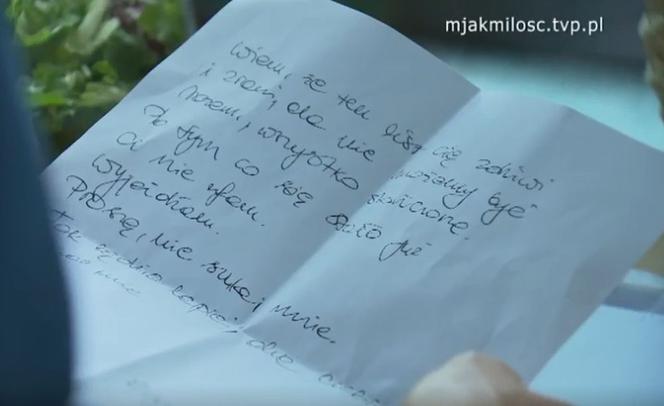 mjakmilosc.tvp.pl
Wiem, że ten list cię zdziwi
i zrani, ale nie możemy być
razem, wszystko skończone.
Po tym co się stało już
ci nie ufam.
Wyjeżdżam.
Proszę, nie szukaj mnie.
Tak będzie lepiej, dla